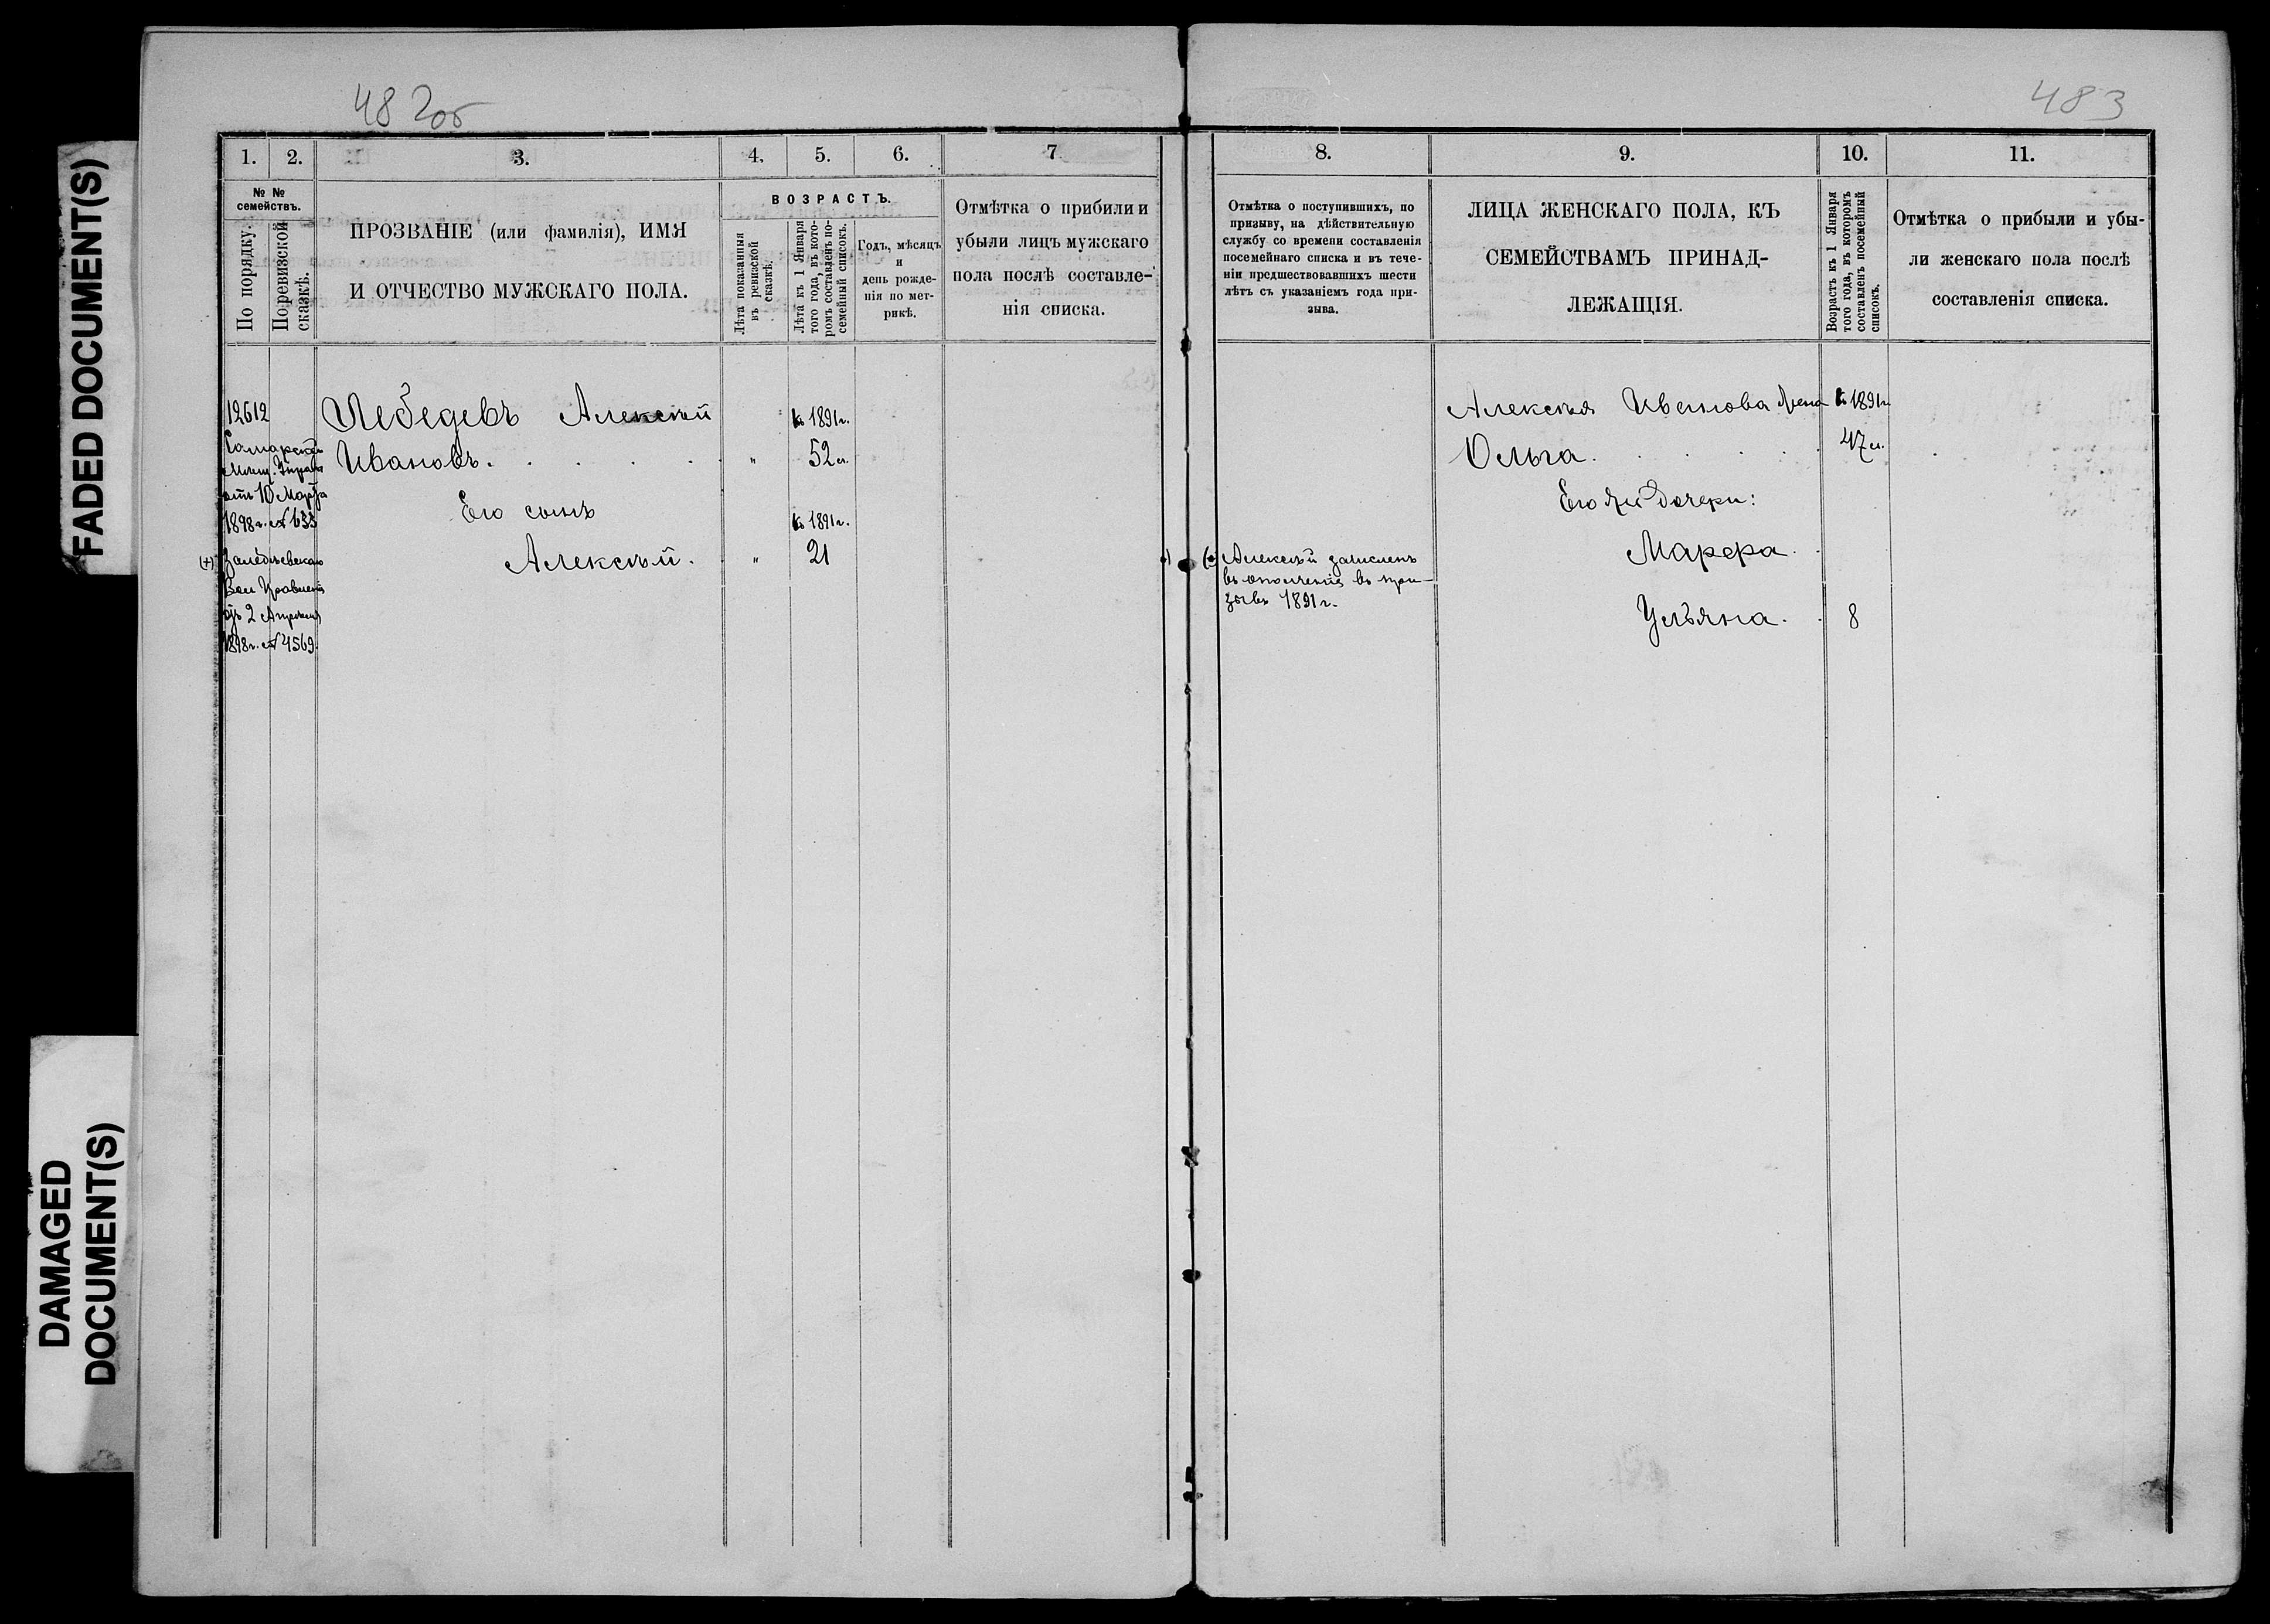 FADED DOCUMENT(S)
DAMAGED
DOCUMENT(S)
482об
1. 2. 3. 4. 5. 6. 7
№ №
семействъ.
По порядку.
По ревизской
сказкѣ.
ПРОЗВАНІЕ (или фамилія), ИМЯ
И ОТЧЕСТВО МУЖСКАГО ПОЛА.
ВОЗРАСТЪ.
Лѣта показанныя
въ ревизской
сказкѣ.
Лѣта къ 1 Января
того года, въ кото-
ромъ составленъ по-
семейный списокъ.
Годъ, мѣсяцъ
и
день рожде-
нія по мет-
рикѣ.
Отмѣтка о прибыли и
убыли лицъ мужскаго
пола послѣ составле-
нія списка.
12612
Самарской
Мѣщ. Управы
отъ 10 Марта
1898 г. № 633
(+)
Вол Правленія
2 Апрѣля
1898 г. № 4569.
Лебедевъ Алексѣй
Ивановъ. . . . . " 52 л.
къ 1891 г.
Его сынъ
къ 1891 г.
Алексѣй. . " 21
483
8. 9. 10. 11.
Отмѣтка о поступившихъ, по
призыву, на дѣйствительную
службу со времени составленія
посемейнаго списка и въ тече-
ніи предшествовавшихъ шести
лѣтъ съ указаніемъ года при-
зыва.
ЛИЦА ЖЕНСКАГО ПОЛА, КЪ
СЕМЕЙСТВАМЪ ПРИНАД-
ЛЕЖАЩІЯ.
Возрастъ къ 1 Января
того года, въ которомъ
составленъ посемейный
списокъ.
Отмѣтка о прибыли и убы-
ли женскаго пола послѣ
составленія списка.
Алексѣя Иванова жена къ 1891 г.
Ольга. . . . . 47 л.
Его дочери:
Марфа. .
Алексѣй зачисленъ
въ ополченіе въ при-
зывъ 1891 г.
Ульяна. . 8